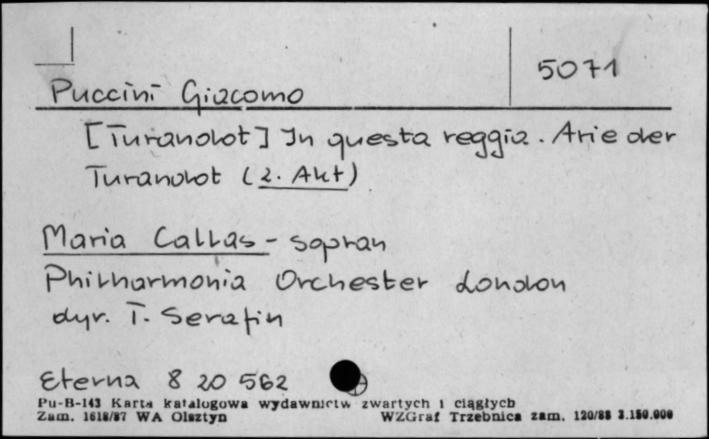 5071
Puccini Giacomo
[Turandot] In questa reggia. Arie der
Turandot (2. Akt)
Maria Callas - sopran
Philharmonia Orchester London
dyr. T. Serafin
Eterna 8 20 562
Pu-B-143 Karta katalogowa wydawnictw zwartych i ciągłych
Zam. 1618/87 WA Olsztyn WZGraf Trzebnica zam. 120/88 3.150.000